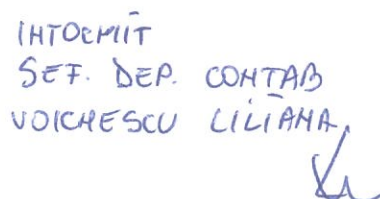 INTOCMIT
SEF. DEP. CONTAB
VOICHESCU LILIANA